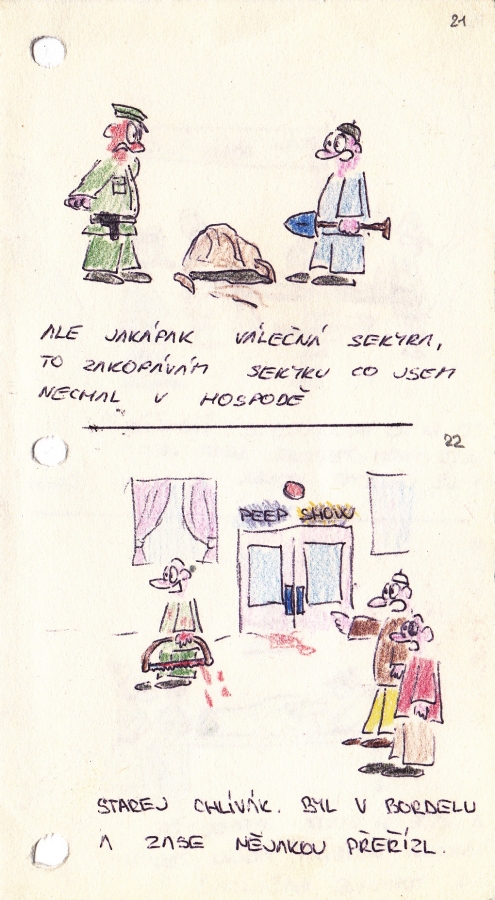 21
ALE JAKÁPAK VÁLEČNÁ SEKYRA,
TO ZAKOPÁVÁM SEKYRU CO JSEM
NECHAL V HOSPODĚ
22
PEEP SHOW
STAREJ CHLÍVÁK. BYL V BORDELU
A ZASE NĚJAKOU PŘEŘÍZL.